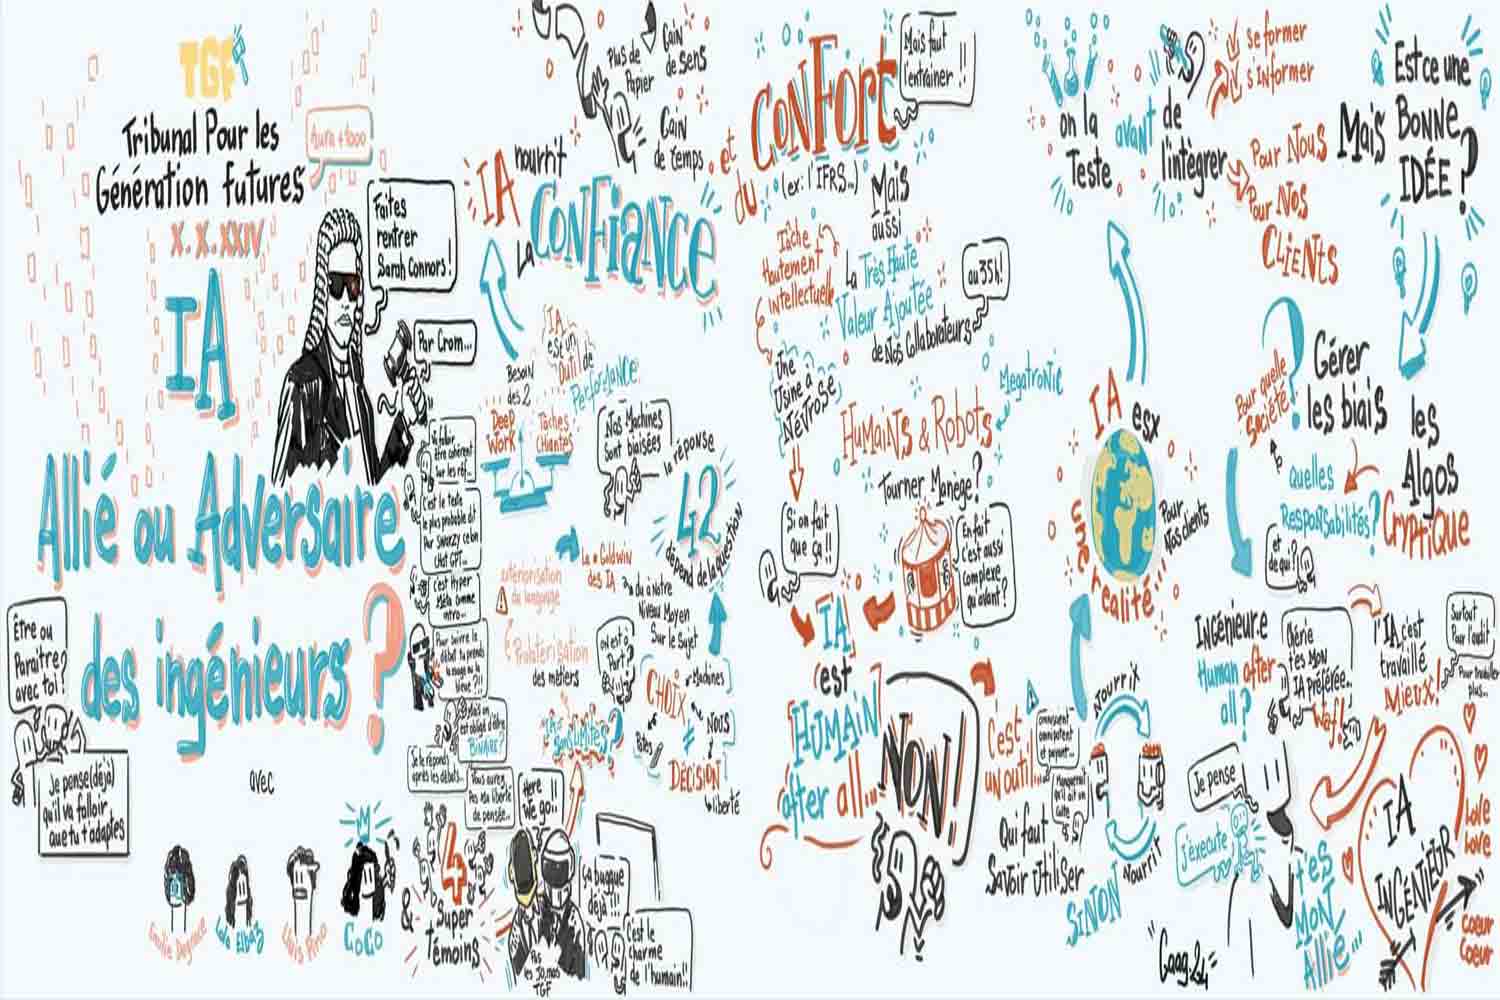 TGF
Tribunal Pour les
Génération futures
X.X.XXIV
Aura +1000
Faites
rentrer
Sarah Connors!
Par Crom...
IA
Allié ou Adversaire
des ingénieurs?
Être ou
Paraître?
avec toi?
Je pense (déjà)
qu'il va falloir
que tu t'adaptes
avec
CoCo
&
4
Super
Témoins
Il falloir
être cohérent
sur les réf...
C'est le texte
le plus probable dit
chat GPT...
c'est Hyper
Méta comme
intro...
Pour suivre le
débat tu prends
la rouge ou la
bleue?!!
Mais on
est obligé d'être
BINAIRE?
Je te réponds
après les débats...
Vous avez
Pas ma liberté
de pensée...
Here
We go..!!
ça bugue
déjà!!!
C'est le
charme
de l'humain!!
Pas
les JO, mais
TGF
Plus de
Papier
Gain
de sens
Gain
de temps
IA nourrit
La CONFIANCE
IA
est un
Outil de
Performance
Besoin
des 2
Deep
Work
Tâches
Chiantes
Nos Machines
Sont biaisées
la réponse
42
dépend de la question
Le • Goldwin
des IA
extériorisation
du langage
Prolétarisation
des métiers
du à notre
Niveau Moyen
Sur le Sujet
on est où
Part?
CHOIX
Machines
≠
NOUS
DÉCISION
liberté
et
du CONFORT
(ex: l'IFRS...)
Mais faut
l'entrainer!!
Mais
aussi
Tâche
Hautement
intellectuelle
La Très Haute
Valeur Ajoutée
de Nos Collaborateurs
au 35h!
Une
Usine à
Névrose
Megatronic
HUMAINS & Robots
Tourner Manège?
Si on fait
que ça!!
En fait
c'est aussi
complexe
qu'avant?
IA
c'est
HUMAIN
after all...
NON!
C'est
un outil...
Qui faut
Savoir Utiliser
SINON
omniscient
omnipotent
et payant...
Manquerait
qu'il ait un
culte
Nourrix
Nourrit
on la
Teste
avant de
l'intégrer
se former
s'informer
Pour Nous
Pour Nos
CLIENTS
IA esx
une réalité
Pour
Nos clients
Est ce une
Mais BONNE
IDÉE?
Pour quelle
Société?
Gérer
les biais
les
Algos
CRYPTIQUE
Quelles
Responsabilités?
et
de qui?
INGÉNIEUR.E
Human after
all?
Chérie
t'es MON
IA préférée..
Waf!
l'IA c'est
travaillé
Mieux!
Surtout
Pour l'audit
Pour travailler
plus...
Je pense
J'exécute
t'ES
MON
Allié...
IA
INGÉNIEUR
Love
Love
Coeur
Coeur
"Gaag.24"